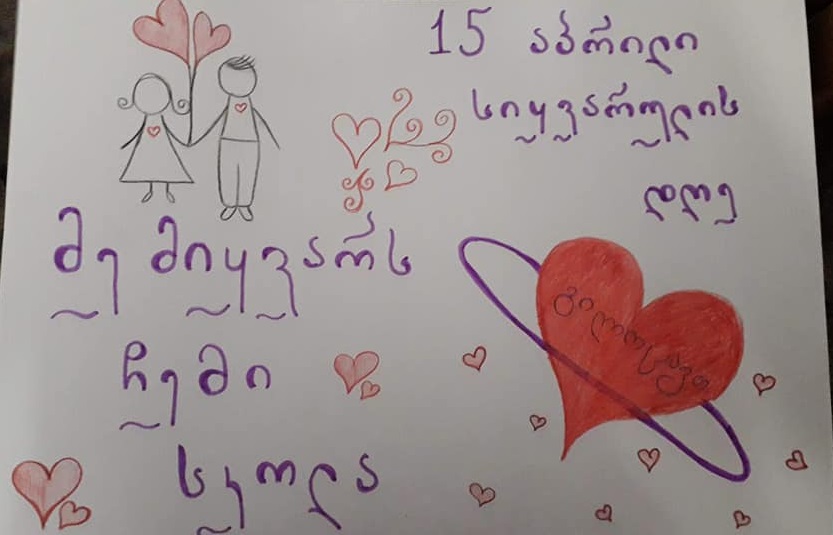 15 აპრილი
სიყვარულის
დღე
მე მიყვარს
ჩემი
სკოლა
გილოცავთ